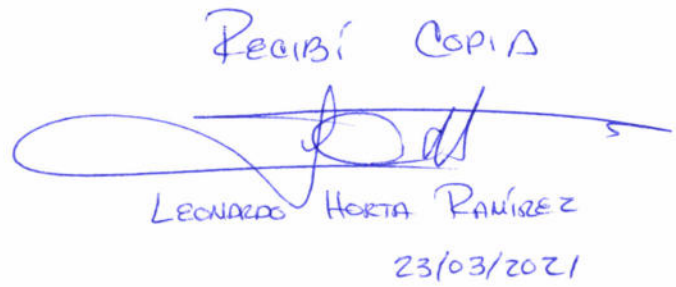 RECIBÍ COPIA
LEONARDO HORTA RAMÍREZ
23/03/2021